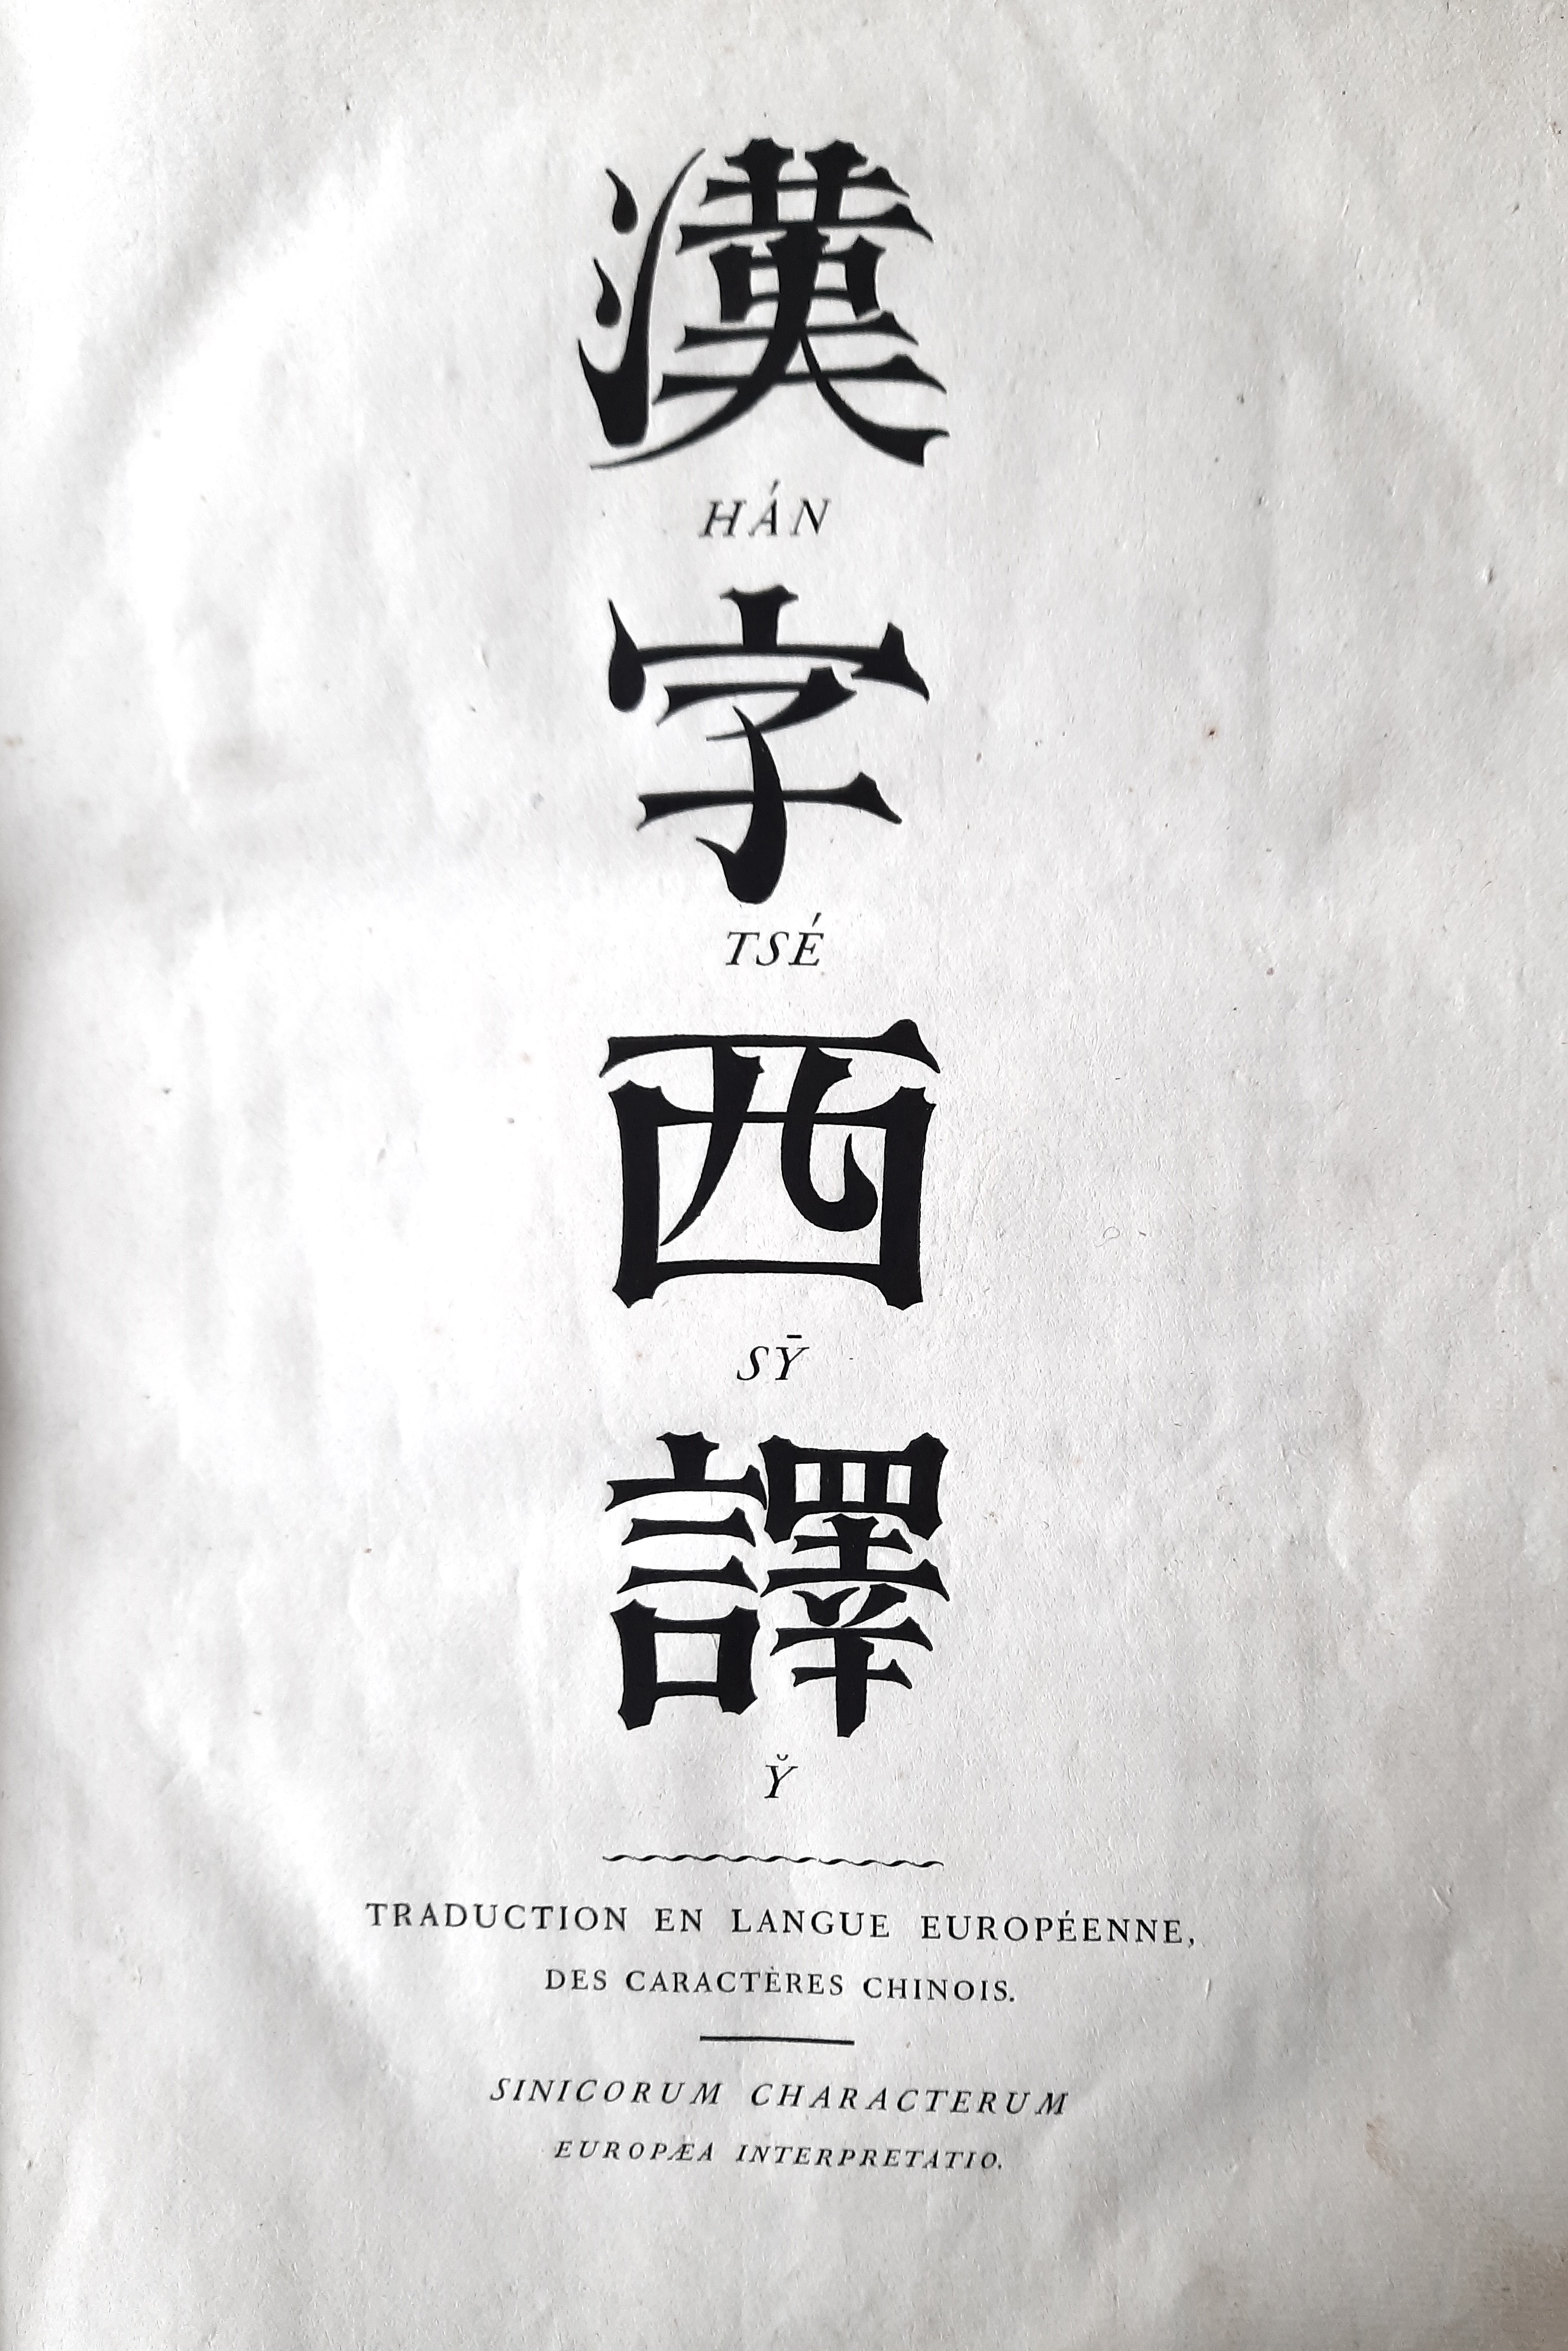 漢
HÁN
字
TSÉ
西
SȲ
譯
Y̆
TRADUCTION EN LANGUE EUROPÉENNE,
DES CARACTÈRES CHINOIS.
SINICORUM CHARACTERUM
EUROPÆA INTERPRETATIO.